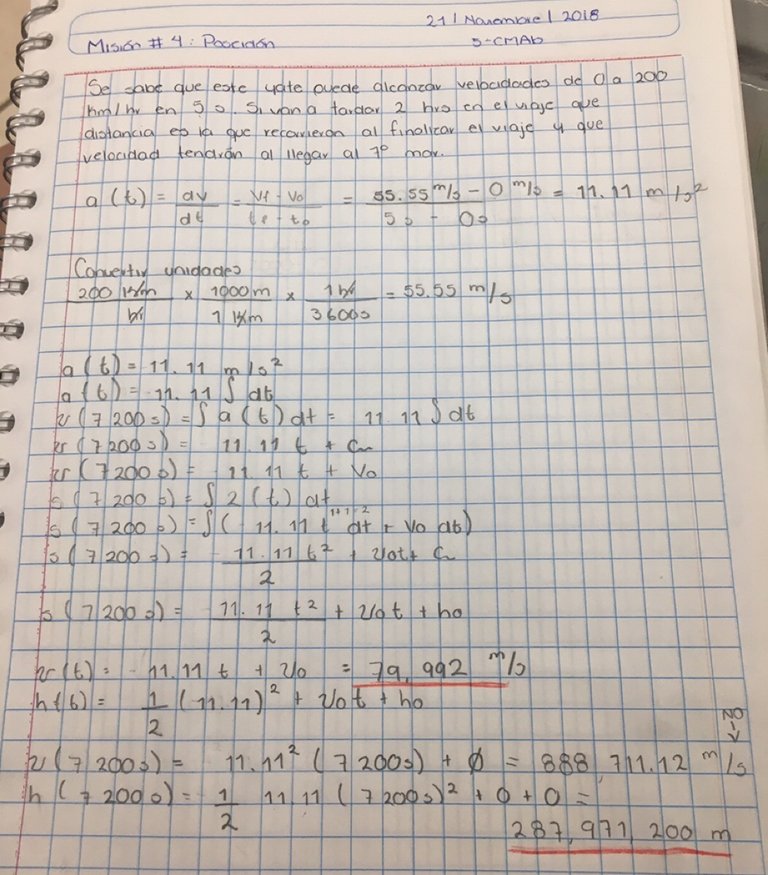 21 | Noviembre | 2018
Misión # 4: Posición 5-CMAb
Se sabe que este yate puede alcanzar velocidades de 0 a 200
km/hr en 5 s. Si van a tardar 2 hrs en el viaje que
distancia es la que recorrieron al finalizar el viaje y que
velocidad tendrán al llegar al 7º mar.
a(t) = dv/dt = Vf - Vo / tf - to = 55.55 m/s - 0 m/s / 5s - 0s = 11.11 m/s²
Convertir unidades
200 km/hr x 1000m/1 km x 1 hr/3600s = 55.55 m/s
a(t) = 11.11 m/s²
a(t) = 11.11 ∫ dt
v(7200s) = ∫ a(t) dt = 11.11 ∫ dt
v(7200s) = 11.11 t + C
v(7200s) = 11.11 t + Vo
s(7200s) = ∫ 2(t) dt
s(7200s) = ∫( 11.11 t¹⁺¹⁼² dt + Vo dt)
s(7200s) = 11.11 t²/2 + Vot + C
s(7200s) = 11.11 t²/2 + Vot + ho
v(t) = 11.11 t + Vo = 79,992 m/s
h(t) = 1/2 (11.11)² + Vot + ho
v(7200s) = 11.11² (7200s) + 0 = 888,711.12 m/s
h(7200s) = 1/2 11.11 (7200s)² + 0 + 0 =
287,971,200 m